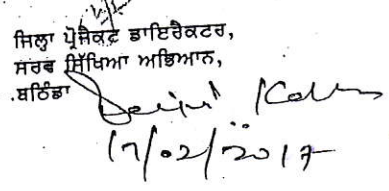 ਜਿਲ੍ਹਾ ਪ੍ਰੋਜੈਕਟ ਡਾਇਰੈਕਟਰ,
ਸਰਵ ਸਿੱਖਿਆ ਅਭਿਆਨ,
ਬਠਿੰਡਾ
17/02/2017